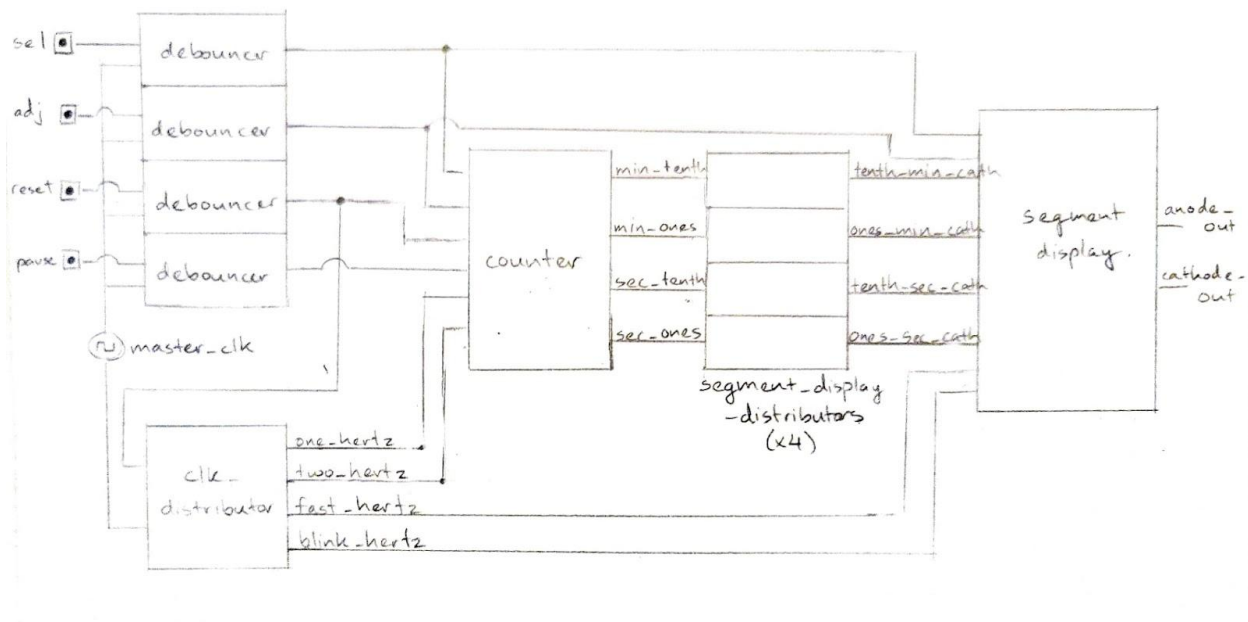 sel
debouncer
adj
debouncer
reset
debouncer
pause
debouncer
master_clk
clk_
distributor
one_hertz
two_hertz
fast_hertz
blink_hertz
counter
min_tenth
min_ones
sec_tenth
sec_ones
segment_display
_distributors
(x4)
tenth_min_cath
ones_min_cath
tenth_sec_cath
ones_sec_cath
segment
display.
anode_
out
cathode_
out